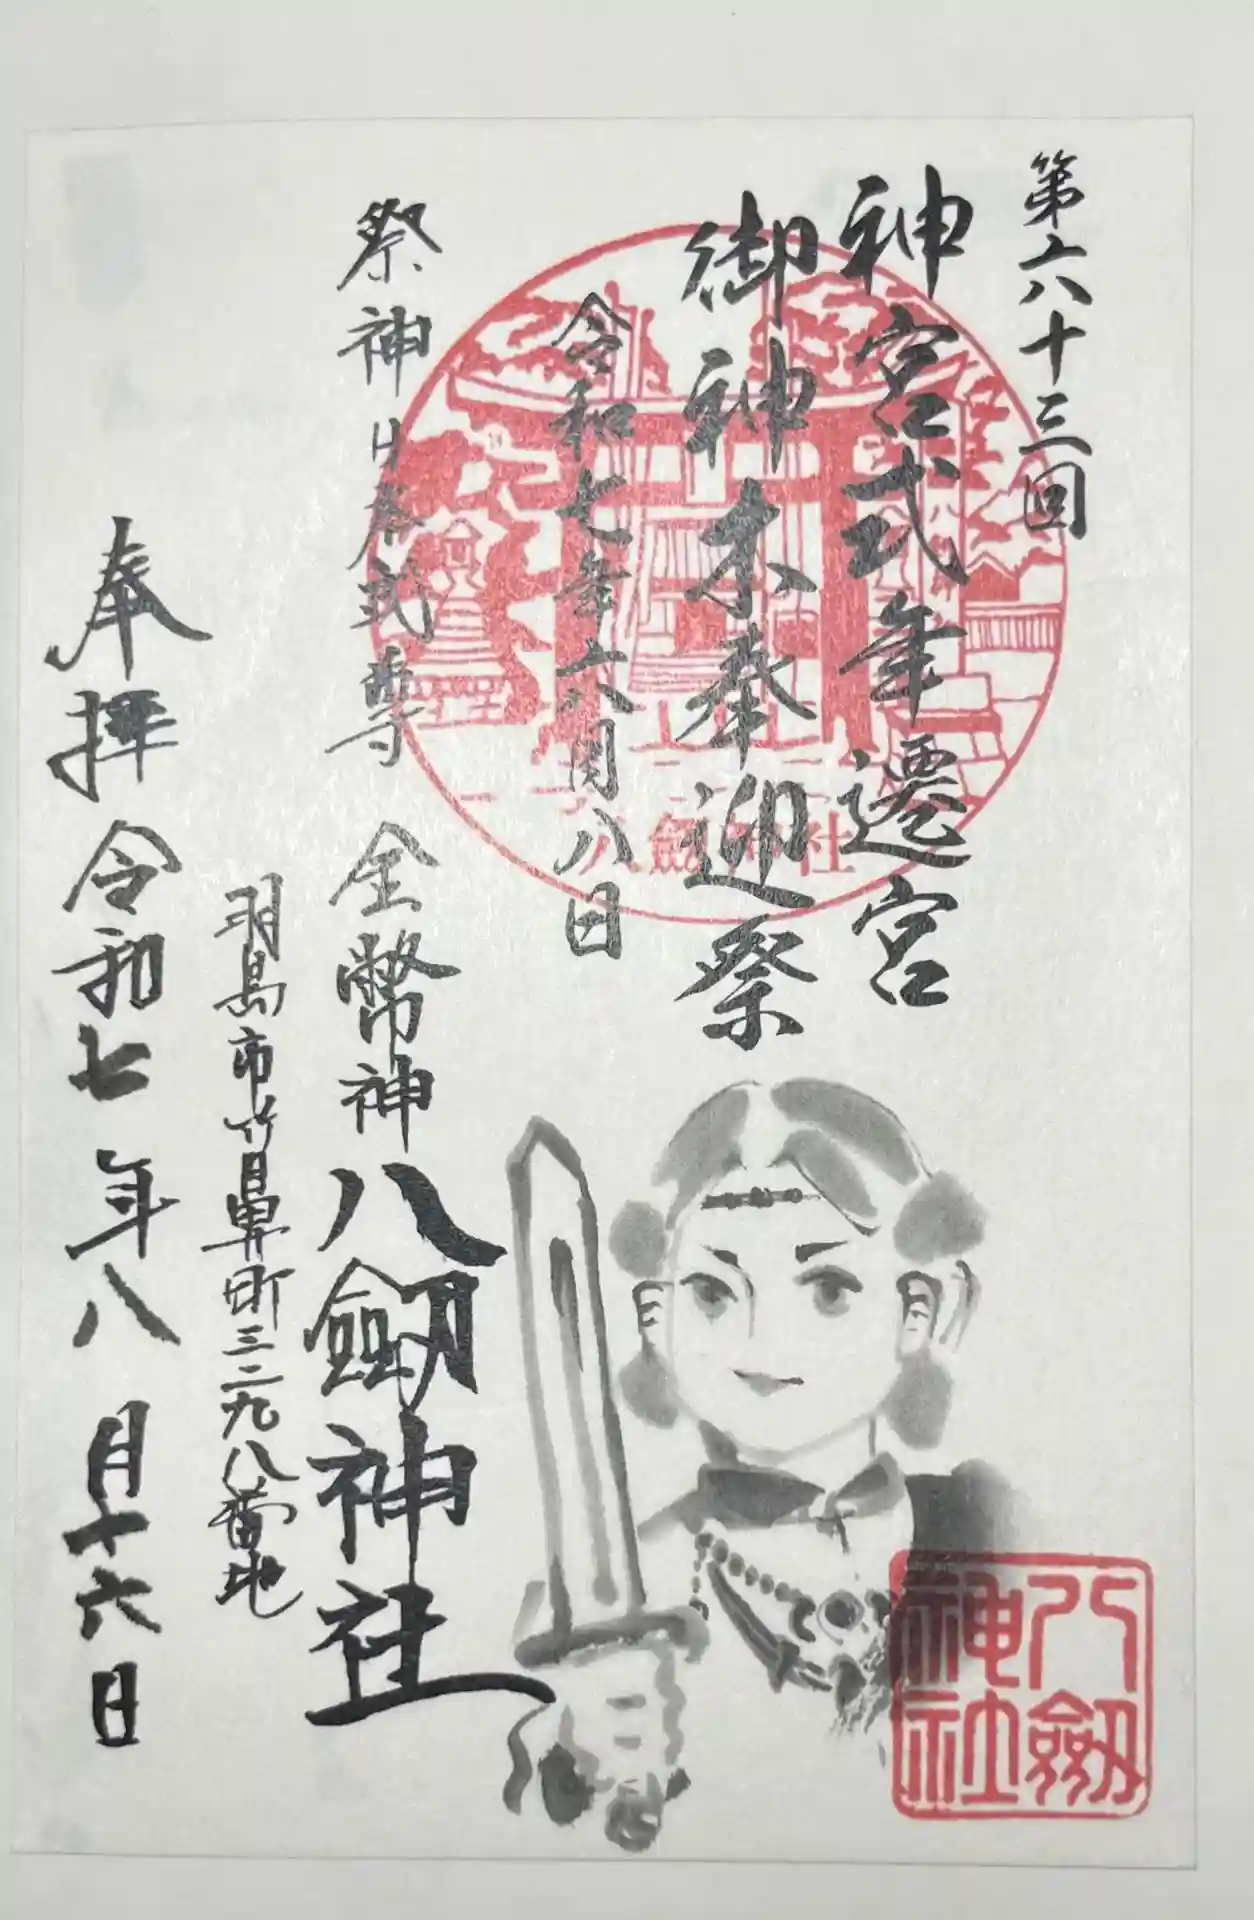 第六十三回
神宮式年遷宮
御神木奉迎祭
令和七年六月八日
祭神 日本武尊 金幣神
八剱神社
羽島市竹鼻町三二九八番地
奉拝 令和七年八月十六日
八剱神社
八剱
神社